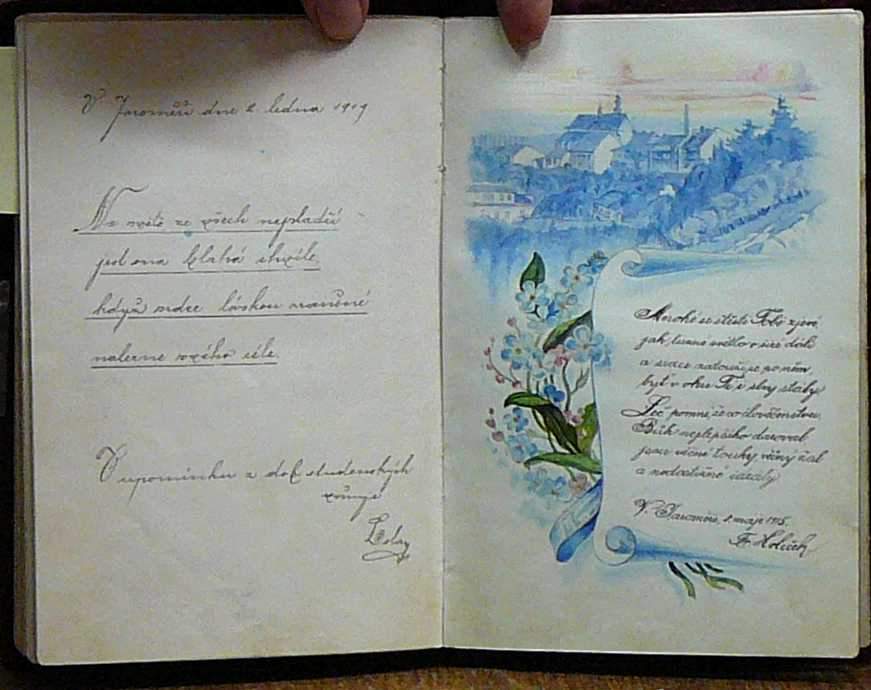 V Jaroměři dne 2. ledna 1919
Na světě ze všech nejsladší
jest ona blahá chvíle,
když srdce láskou raněné
nalezne svého cíle.
V upomínku z dob studenských
věnuje
Mnohé se štěstí Tobě zjeví
jak světlo v dál
a srdce zatouží po něm
byť v oku Ti i slzy stály.
Leč pomni, že co člověčenstvu
Bůh nejlepšího daroval
jsou věčné touhy věčný žal
a nedostižné ideály.
V Jaroměři, 8. máje 1915.
Fr. Holeček